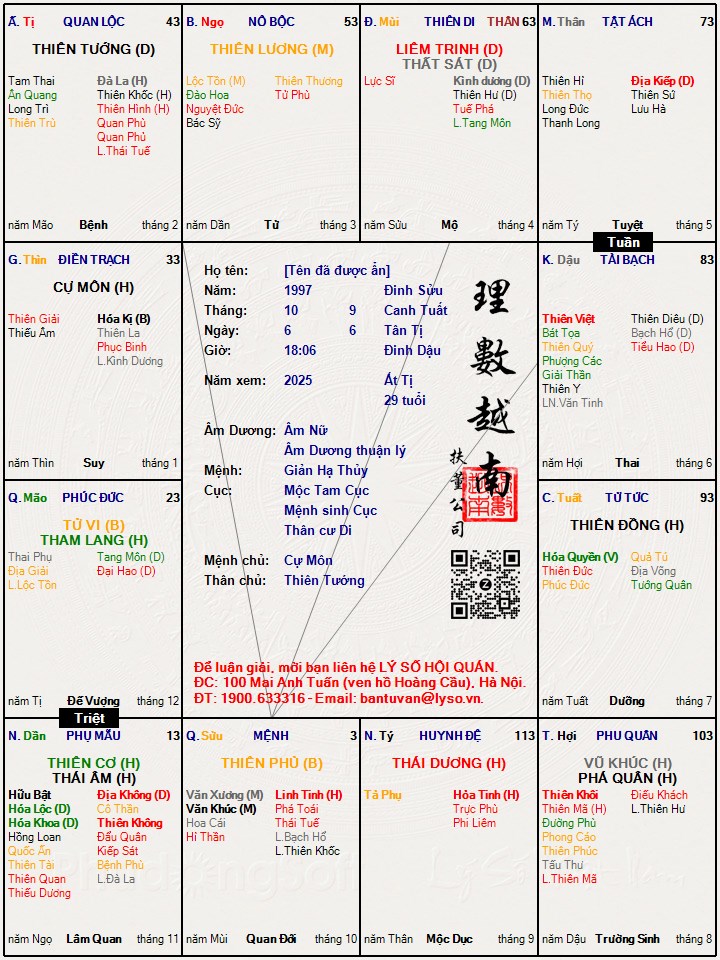 Ấ. Tị QUAN LỘC 43
THIÊN TƯỚNG (D)
Tam Thai Đà La (H)
Ân Quang Thiên Khốc (H)
Long Trì Thiên Hình (H)
Thiên Trù Quan Phù
Quan Phủ
L.Thái Tuế
năm Mão Bệnh tháng 2
B. Ngọ NÔ BỘC 53
THIÊN LƯƠNG (M)
Lộc Tồn (M) Thiên Thương
Đào Hoa Tử Phù
Nguyệt Đức
Bác Sỹ
năm Dần Tử tháng 3
Đ. Mùi THIÊN DI THÂN 63
LIÊM TRINH (D)
THẤT SÁT (D)
Lực Sĩ Kình dương (D)
Thiên Hư (D)
Tuế Phá
L.Tang Môn
năm Sửu Mộ tháng 4
M. Thân TẬT ÁCH 73
Thiên Hỉ Địa Kiếp (D)
Thiên Thọ Thiên Sứ
Long Đức Lưu Hà
Thanh Long
năm Tý Tuyệt tháng 5
Tuần
G. Thìn ĐIỀN TRẠCH 33
CỰ MÔN (H)
Thiên Giải Hóa Kị (B)
Thiếu Âm Thiên La
Phục Binh
L.Kình Dương
năm Thìn Suy tháng 1
Họ tên: [Tên đã được ẩn]
Năm: 1997 Đinh Sửu
Tháng: 10 9 Canh Tuất
Ngày: 6 6 Tân Tị
Giờ: 18:06 Đinh Dậu
Năm xem: 2025 Ất Tị
29 tuổi
Âm Dương: Âm Nữ
Âm Dương thuận lý
Mệnh: Giản Hạ Thủy
Cục: Mộc Tam Cục
Mệnh sinh Cục
Thân cư Di
Mệnh chủ: Cự Môn
Thân chủ: Thiên Tướng
理數越南
扶董公司
Để luận giải, mời bạn liên hệ LÝ SỐ HỘI QUÁN.
ĐC: 100 Mai Anh Tuấn (ven hồ Hoàng Cầu), Hà Nội.
ĐT: 1900.633316 - Email: bantuvan@lyso.vn.
K. Dậu TÀI BẠCH 83
Thiên Việt Thiên Diêu (D)
Bát Tọa Bạch Hổ (D)
Thiên Quý Tiểu Hao (D)
Phượng Các
Giải Thần
Thiên Y
LN.Văn Tinh
năm Hợi Thai tháng 6
Q. Mão PHÚC ĐỨC 23
TỬ VI (B)
THAM LANG (H)
Thai Phụ Tang Môn (D)
Địa Giải Đại Hao (D)
L.Lộc Tồn
năm Tị Đế Vượng tháng 12
Triệt
C. Tuất TỬ TỨC 93
THIÊN ĐỒNG (H)
Hóa Quyền (V) Quả Tú
Thiên Đức Địa Võng
Phúc Đức Tướng Quân
năm Tuất Dưỡng tháng 7
N. Dần PHỤ MẪU 13
THIÊN CƠ (H)
THÁI ÂM (H)
Hữu Bật Địa Không (D)
Hóa Lộc (D) Cô Thần
Hóa Khoa (D) Thiên Không
Hồng Loan Đẩu Quân
Quốc Ấn Kiếp Sát
Thiên Tài Bệnh Phù
Thiên Quan L.Đà La
Thiếu Dương
năm Ngọ Lâm Quan tháng 11
Q. Sửu MỆNH 3
THIÊN PHỦ (B)
Văn Xương (M) Linh Tinh (H)
Văn Khúc (M) Phá Toái
Hoa Cái Thái Tuế
Hỉ Thần L.Bạch Hổ
L.Thiên Khốc
năm Mùi Quan Đới tháng 10
N. Tý HUYNH ĐỆ 113
THÁI DƯƠNG (H)
Tả Phụ Hỏa Tinh (H)
Trực Phù
Phi Liêm
năm Thân Mộc Dục tháng 9
T. Hợi PHU QUÂN 103
VŨ KHÚC (H)
PHÁ QUÂN (H)
Thiên Khôi Điếu Khách
Thiên Mã (H) L.Thiên Hư
Đường Phù
Phong Cáo
Thiên Phúc
Tấu Thư
L.Thiên Mã
năm Dậu Trường Sinh tháng 8